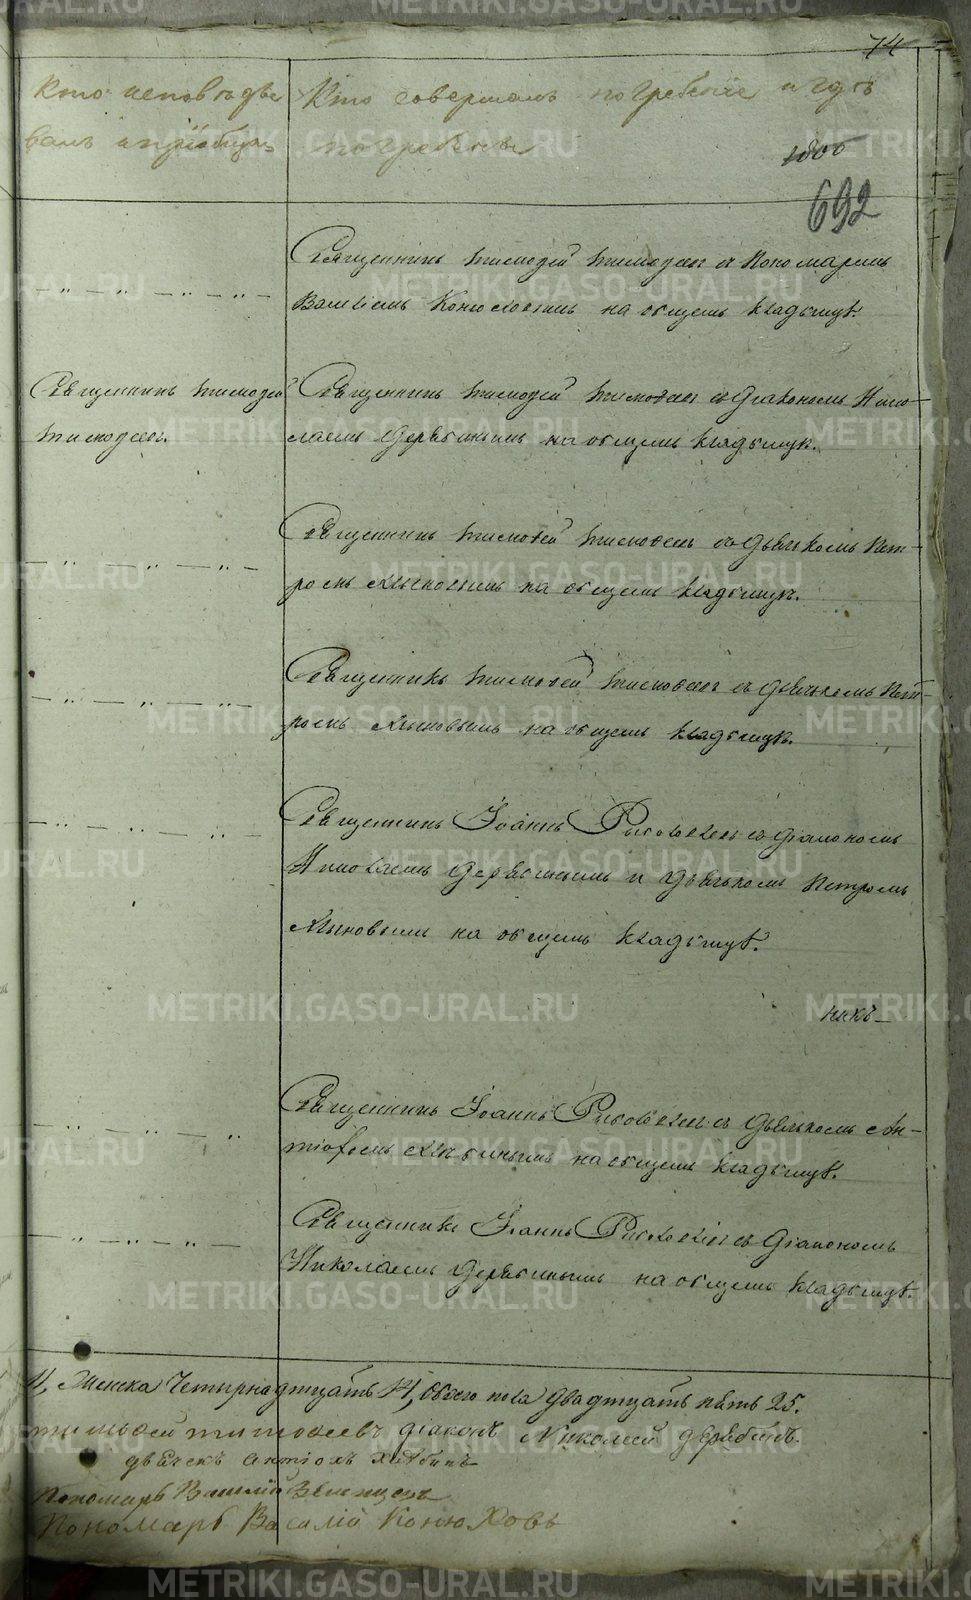 74
Кто исповѣды
валъ и пріобща=
Кто совершалъ погребеніе и гдѣ
погребены
692
Священникъ Тимоѳей Тимоѳеевъ съ Пономаремъ
Василіемъ Конюховымъ на общемъ кладбищѣ.
Священникъ Тимоѳей
Тимоѳеевъ.
Священникъ Тимоѳей Тимоѳеевъ съ Діакономъ Нико-
лаемъ Дерябинымъ на общемъ кладбищѣ.
Священникъ Тимоѳей Тимоѳеевъ съ Дьячкомъ Пет-
ромъ на общемъ кладбищѣ.
Священникъ Тимоѳей Тимоѳеевъ съ Дьячкомъ Пет-
ромъ на общемъ кладбищѣ.
Священникъ Іоаннъ съ Діакономъ
Николаемъ Дерябинымъ и Дьячкомъ Петромъ
на общемъ кладбищѣ.
Священникъ Іоаннъ съ Дьячкомъ Ан-
тіохомъ Хлѣбинымъ на общемъ кладбищѣ.
Священникъ Іоаннъ съ Діакономъ
Николаемъ Дерябинымъ на общемъ кладбищѣ.
11, Женска Четырнадцать 14, Обоего пола двадцать пять 25.
Тимоѳей Тимоѳеевъ діаконъ Николай Дерябинъ
дьячекъ Антіохъ Хлѣбинъ
Пономарь Василій
Пономарь Василій Конюховъ
METRIKI.GASO-URAL.RU